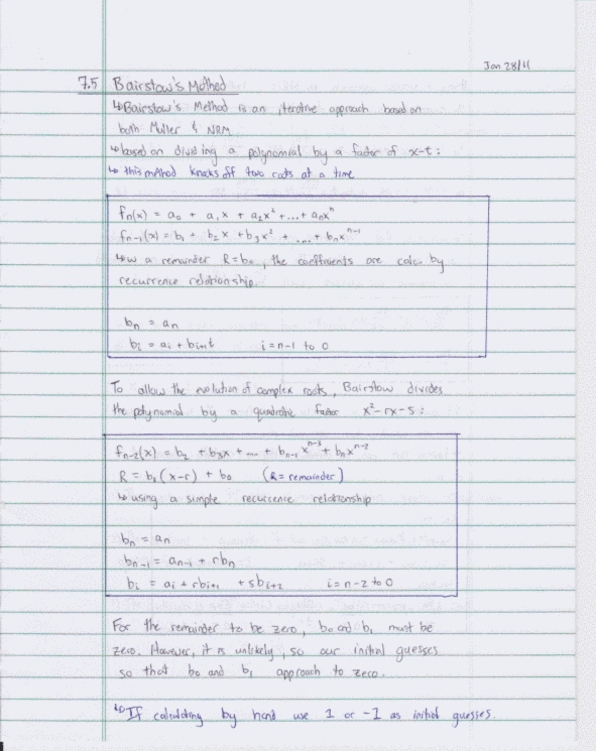 Jan 28/11
7.5 Bairstow's Method
↳ Bairstow's Method is an iterative approach based on
both Muller & NRM.
↳ based on dividing a polynomial by a factor of x-t:
↳ this method knocks off two roots at a time
fn(x) = a₀ + a₁x + a₂x² + ... + anxⁿ
fn-1(x) = b₁ + b₂x + b₃x² + ... + bnxⁿ⁻¹
↳ w a remainder R = b₀, the coefficients are calc. by
recurrence relationship.
bn = an
bi = ai + bi+1t   i = n-1 to 0
To allow the evolution of complex roots, Bairstow divides
the polynomial by a quadratic factor x²-rx-s:
fn-2(x) = b₂ + b₃x + ... + bn-1xⁿ⁻³ + bnxⁿ⁻²
R = b₁(x-r) + b₀   (R = remainder)
↳ using a simple recurrence relationship
bn = an
bn-1 = an-1 + rbn
bi = ai + rbi+1 + sbi+2   i = n-2 to 0
For the remainder to be zero, b₀ and b₁ must be
zero. However, it is unlikely, so our initial guesses
so that b₀ and b₁ approach to zero.
↳ If calculating by hand use 1 or -1 as initial guesses.